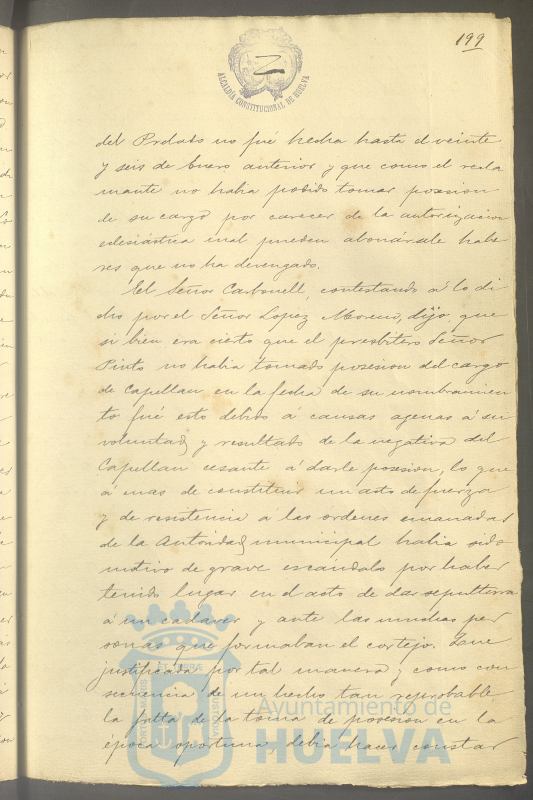 199
ALCALDÍA CONSTITUCIONAL DE HUELVA
del Prelado no fué hecha hasta el veinte
y seis de Enero anterior y que como el recla
mante no habia podido tomar posesion
de su cargo por carecer de la autorizacion
eclesiástica mal pueden abonársele habe
res que no ha devengado.
El Señor Carbonell, contestando á lo di
cho por el Señor Lopez Moreno, dijo, que
si bien era cierto que el presbítero Señor
Pinto no habia tomado posesion del cargo
de Capellan en la fecha de su nombramien
to fué esto debido á causas agenas á su
voluntad y resultado de la negativa del
Capellan cesante á darle posesion, lo que
á mas de constituir un acto de fuerza
y de resistencia á las ordenes emanadas
de la Autoridad municipal habia sido
motivo de grave escándalo por haber
tenido lugar en el acto de dar sepultura
á un cadaver y ante las muchas per
sonas que formaban el cortejo. Que
justificada por tal manera y como con
secuencia de un hecho tan reprobable
la falta de la toma de posesion en la
época oportuna debia hacer constar
Ayuntamiento de
HUELVA